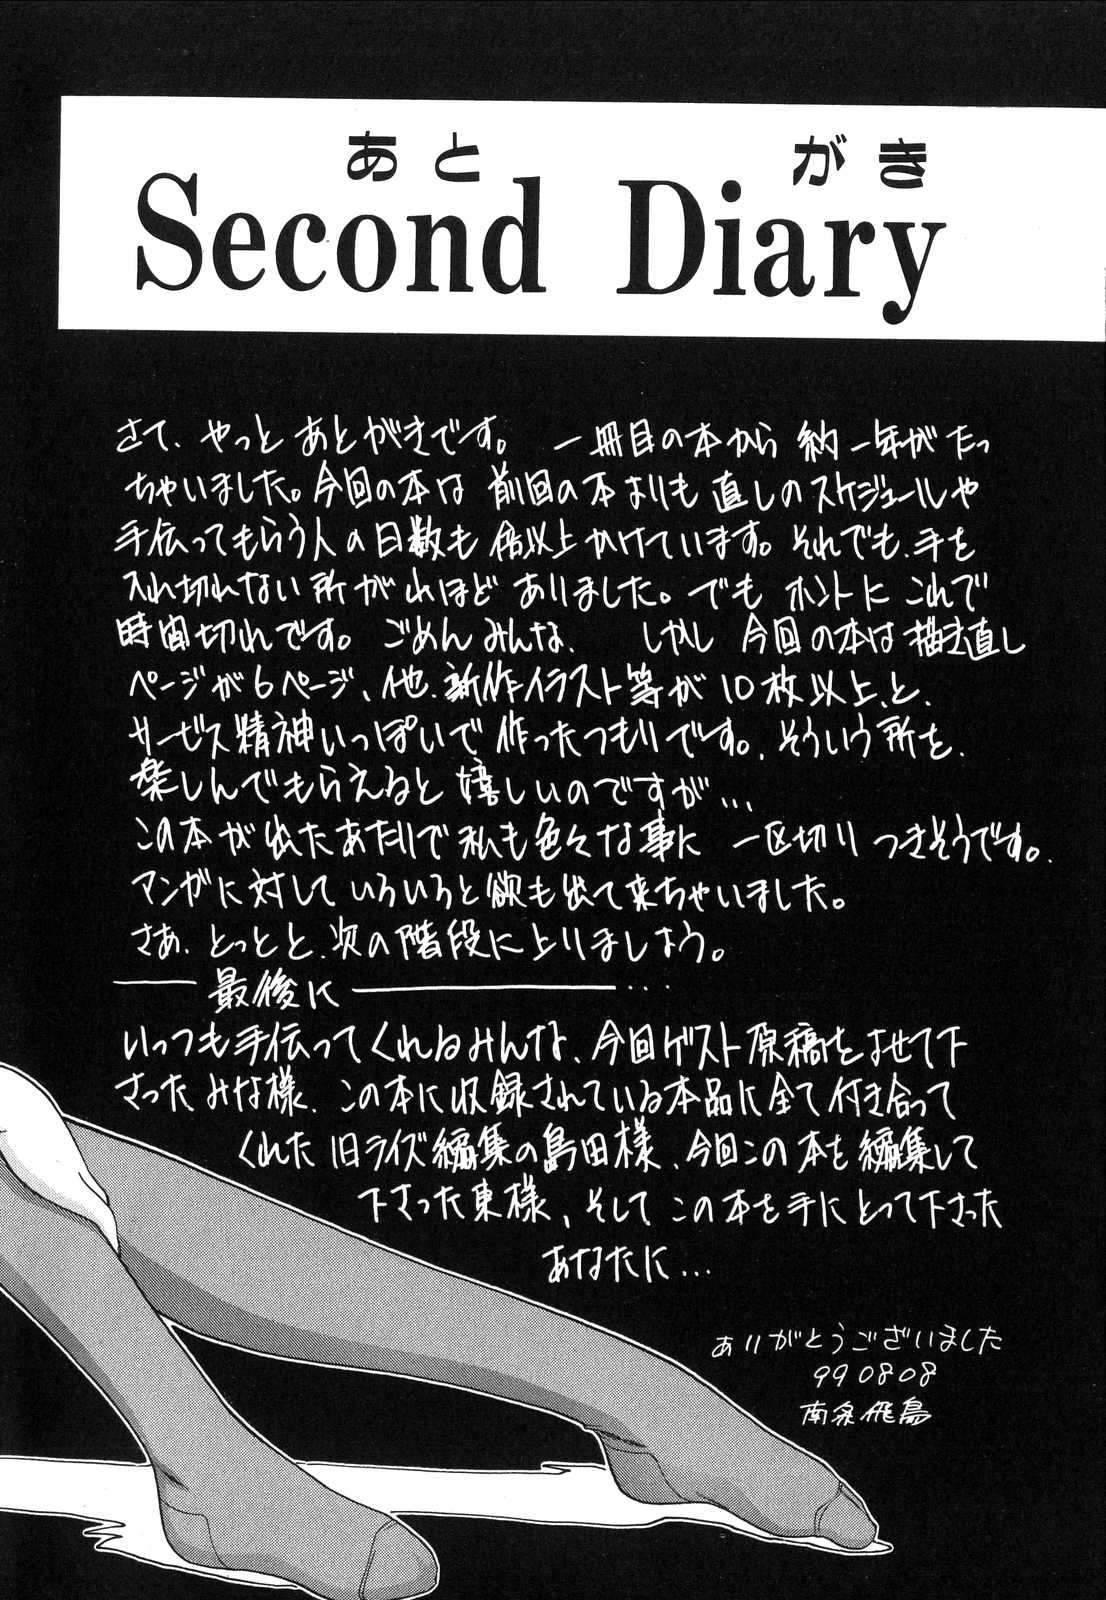 あとがき
Second Diary
さて、やっと あとがきです。 一冊目の本から 約一年がたっ
ちゃいました。今回の本は 前回の本よりも 直しのスケジュールや
手伝ってもらう人の日数も 倍以上かけています。それでも、手を
入れ切れない所が れほど ありました。でも ホントに これで
時間切れです。ごめんみんな、 しかし 今回の本は描き直し
ページが6ページ、他、新作イラスト等が 10枚以上、と、
サービス精神いっぱいで 作ったつもりです。そういう所を、
楽しんでもらえると 嬉しいのですが…
この本が出たあたりで私も色々な事に 一区切り つきそうです。
マンガに対して いろいろと欲も出て来ちゃいました。
さあ、とっとと、次の階段に上りましょう。
―― 最後に ――――――…
いつも手伝ってくれるみんな、今回ゲスト原稿をよせて下
さった みな様、この本に収録されている本品に全て付き合って
くれた 旧ライズ編集の島田様、今回この本を編集して
下さった東様、そして この本を手にとって下さった
あなたに…
ありがとうございました
990808
南条飛鳥